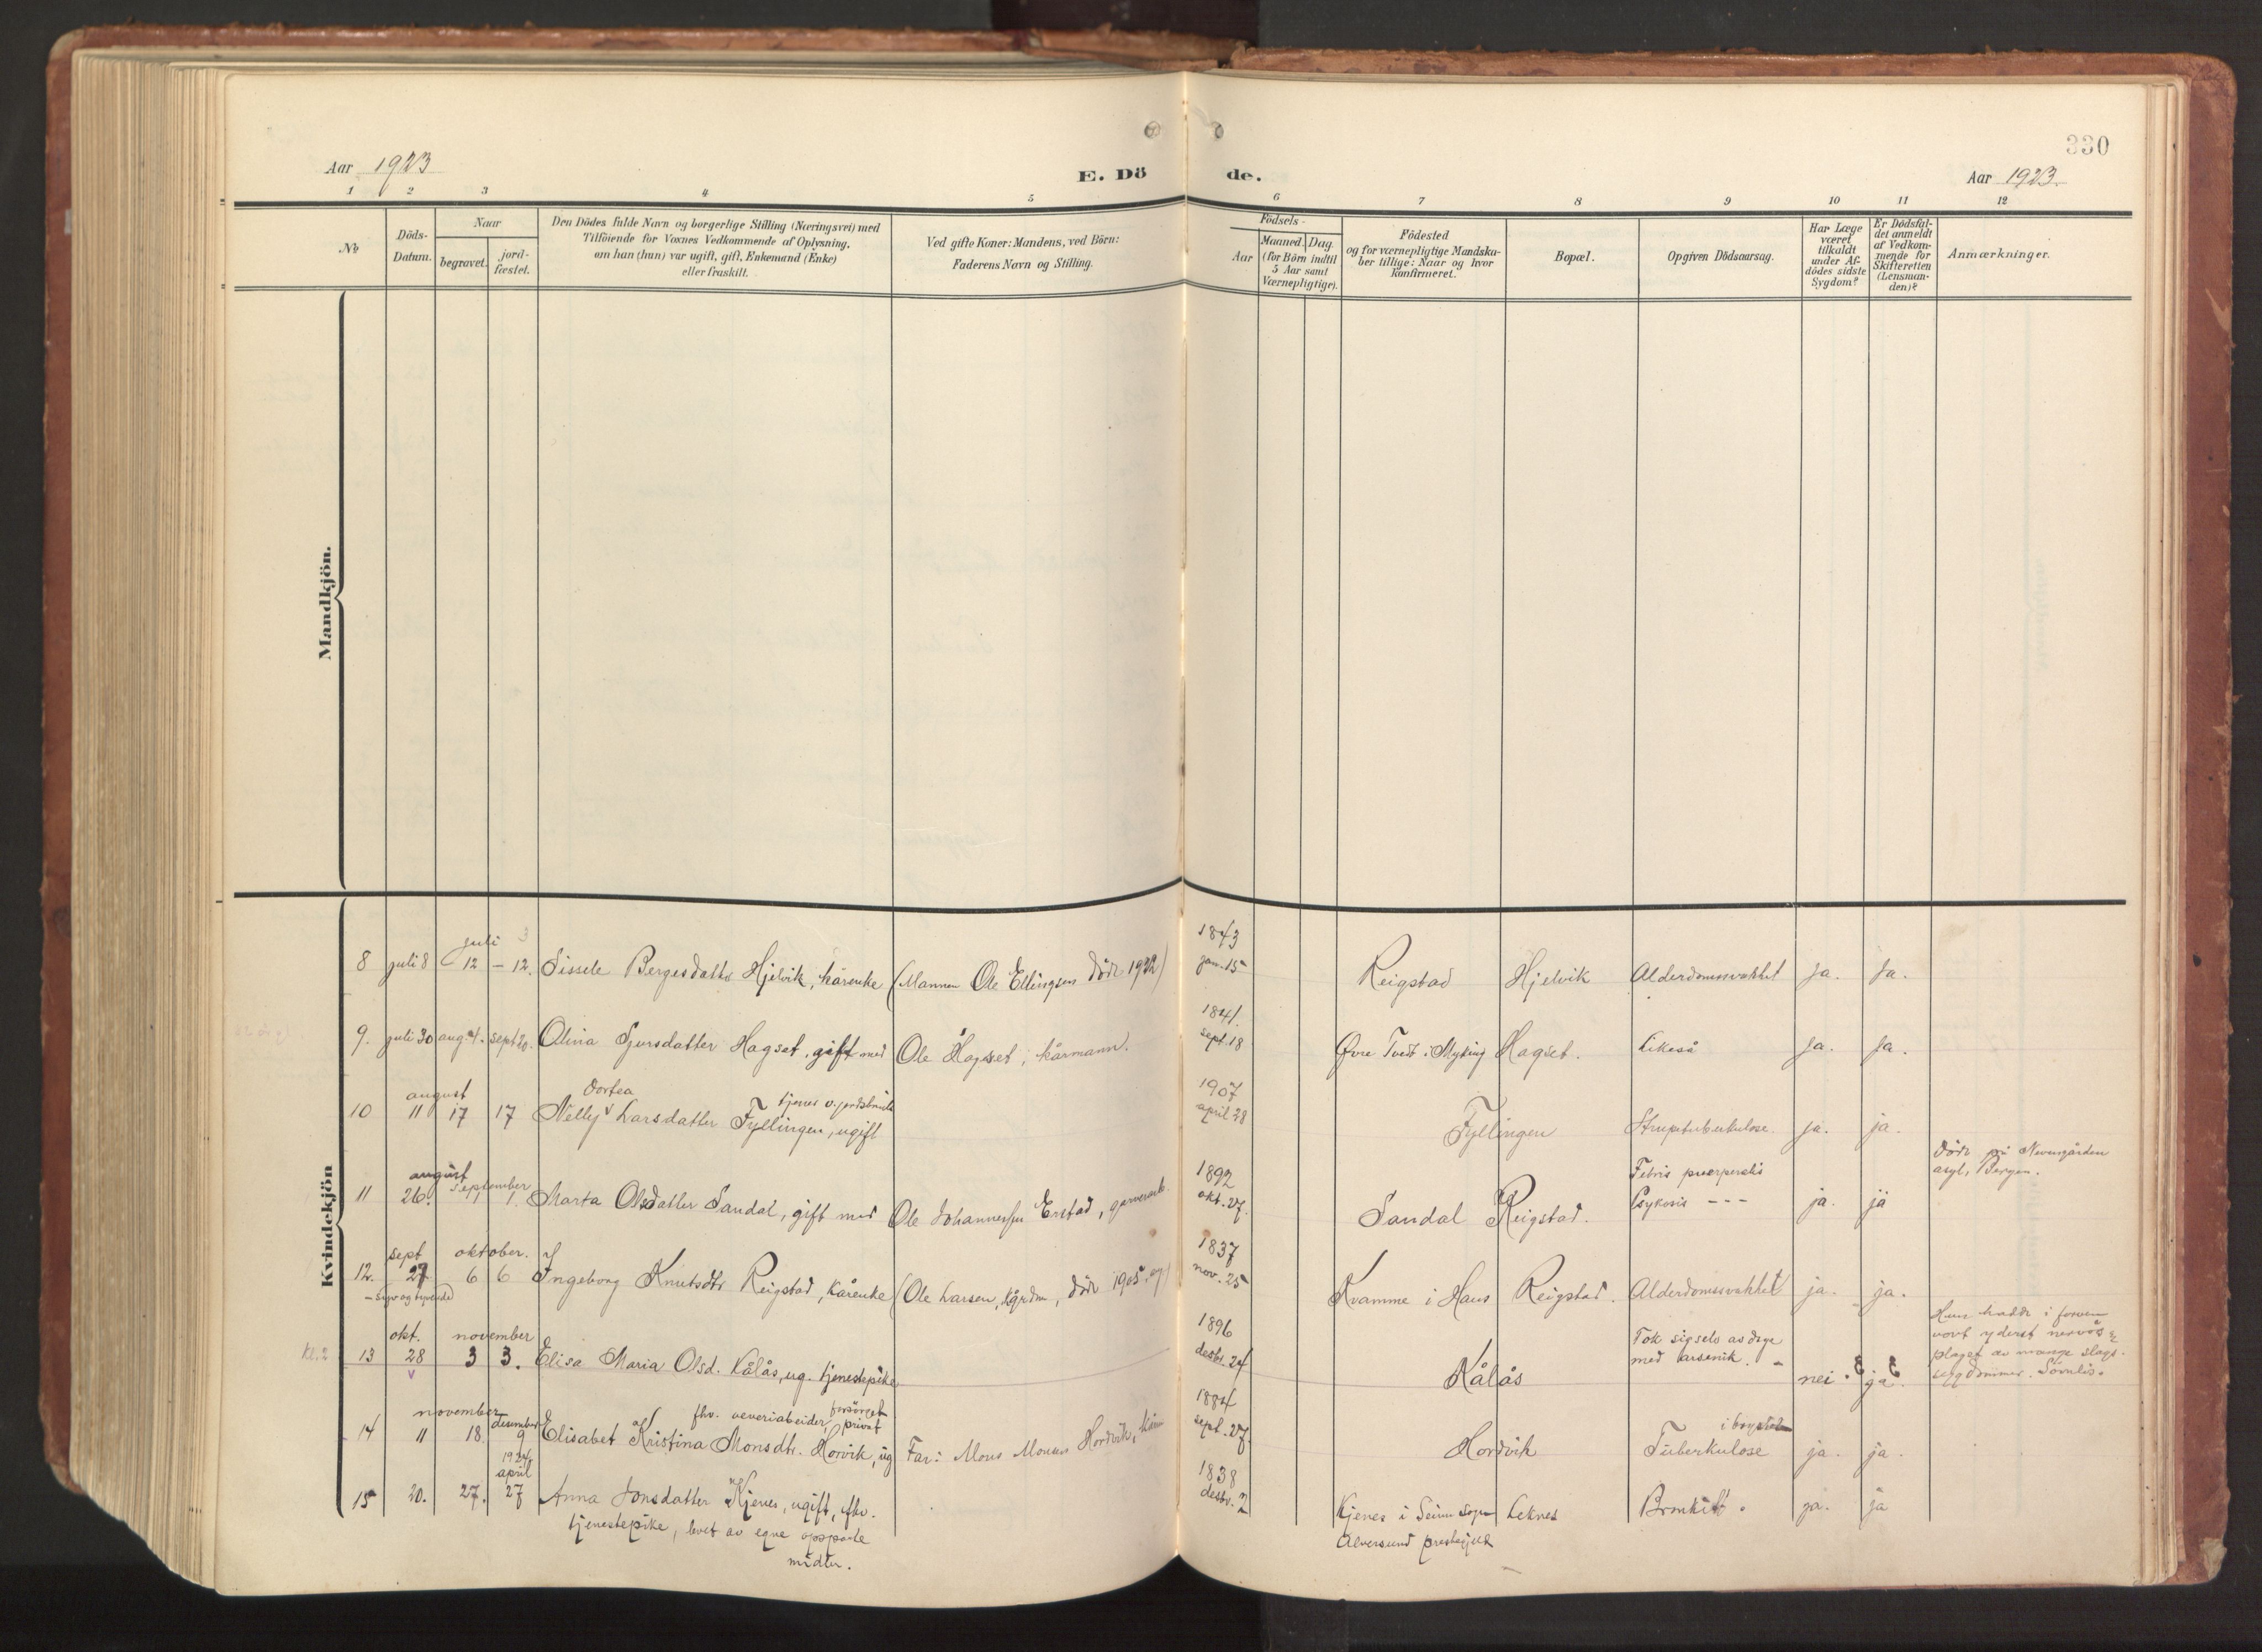 330
Aar 1923
E. Dö de.
Aar 1923.
1 2 3 4 5 6 7 8 9 10 11 12
No
Döds-
Datum.
Naar
begravet.
jord-
fæstet.
Den Dödes fulde Navn og borgerlige Stilling (Næringsvei) med
Tilföiende for Voxnes Vedkommende af Oplysning,
om han (hun) var ugift, gift, Enkemand (Enke)
eller fraskilt.
Ved gifte Koner: Mandens, ved Börn:
Faderens Navn og Stilling.
Födsels-
Aar
Maaned. Dag.
(for Börn indtil
5 Aar samt
Værnepligtige).
Födested
og for værnepligtige Mandska-
ber tillige: Naar og hvor
konfirmeret.
Bopæl.
Opgiven Dödsaarsag.
Har Læge
været
tilkaldt
under Af-
dödes sidste
Sygdom?
Er Dödsfal-
det anmeldt
af Vedkom-
mende for
Skifteretten
(Lensman-
den)?
Anmærkninger.
Mandkjön.
Kvindekjön
juli
8 juli 8 12 - 12. Sissele Bergesdatter Hjelvik, kårenke (Mannen Ole Ellingsen död 1922)
1843
jan. 15
Reigstad Hjelvik Alderdomssvakhet ja. ja.
9. juli 30 aug. 4. sept 20. Olina Sjursdatter Hagset, gift med Ole Hagset, kårmann.
1841.
sept. 18
Øvre Tveit i Myking Hagset. Likeså ja. ja.
august Dortea
10 11 17 17 Nelly Larsdatter Fyllingen, ugift
1907
april 28
Fyllingen Struptuberkulose ja. ja.
august september
11 26. 1. Marta Olsdatter Sandal, gift med Ole Johannessen Erstad,
1892
okt. 27.
Sandal Reigstad.
Febris puerperalis
Psykosis - - - ja. ja
Döde på Neevengården
asyl, Bergen.
sept oktober.
12. 27 6 6 Ingeborg Knutsdtr Reigstad, kårenke (Ole Larsen, död 1905
- syv og tyvende)
1837
nov. 25
Kvamme i Haus Reigstad. Alderdomssvakhet ja. ja.
okt. november
kl. 2 13 28 3 3. Elisa Maria Olsd. Kålås, ug. tjenestepike
1896
desbr. 24
Kålås
Tok sig selv av dage
med arsenik. - nei. ja.
Hun hadde i forveien
vært yderst nervös
plaget av mange slags
sygdommer. Sövnlös.
november desember fhv. veveriarbeider, forsörget privat
14 11 18 9 Elisabet Kristina Monsdtr. Horvik, ug Far: Mons Monsen Hordvik,
1884
sept. 27.
Hordvik Tuberkulose ja. ja.
1924
april
15 20. 27. 27 Anna Jonsdatter Kjenes, ugift, fhv.
tjenestepike, levet av egne opsparte
midler.
1838
desbr. 2
Kjenes i Seim sogn Leknes Bronkit. ja. ja
Alversund prestegjeld